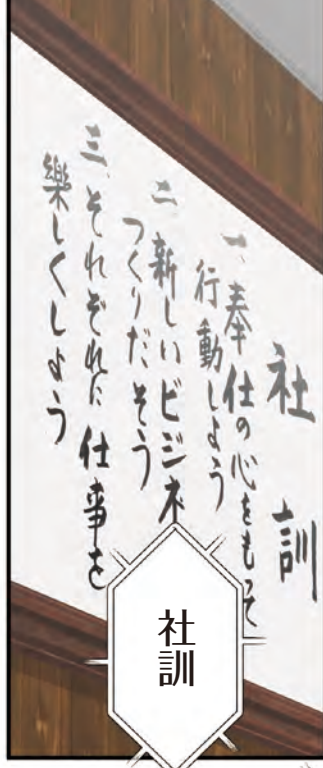 社訓
一、奉仕の心をもって
行動しよう
二、新しいビジネ
つくりだそう
三、それぞれに仕事を
樂しくしよう
社訓